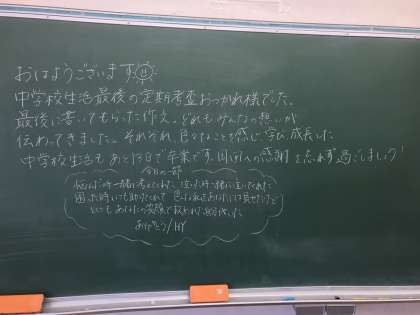 おはようございます
中学校生活最後の定期考査おつかれ様でした。
最後に書いてもらった作文。どれもみんなの想いが
伝わってきました。それぞれ、色々なことを感じ、学び、成長した
中学校生活もあと13日で卒業です。周りへの感謝を忘れず過ごしましょう!
今日の一節
悩んだ時一緒に考えてくれた 泣いた時一緒に泣いてくれた
困った時いつも助けてくれて
いつもあなたの笑顔で救われた
ありがとう/